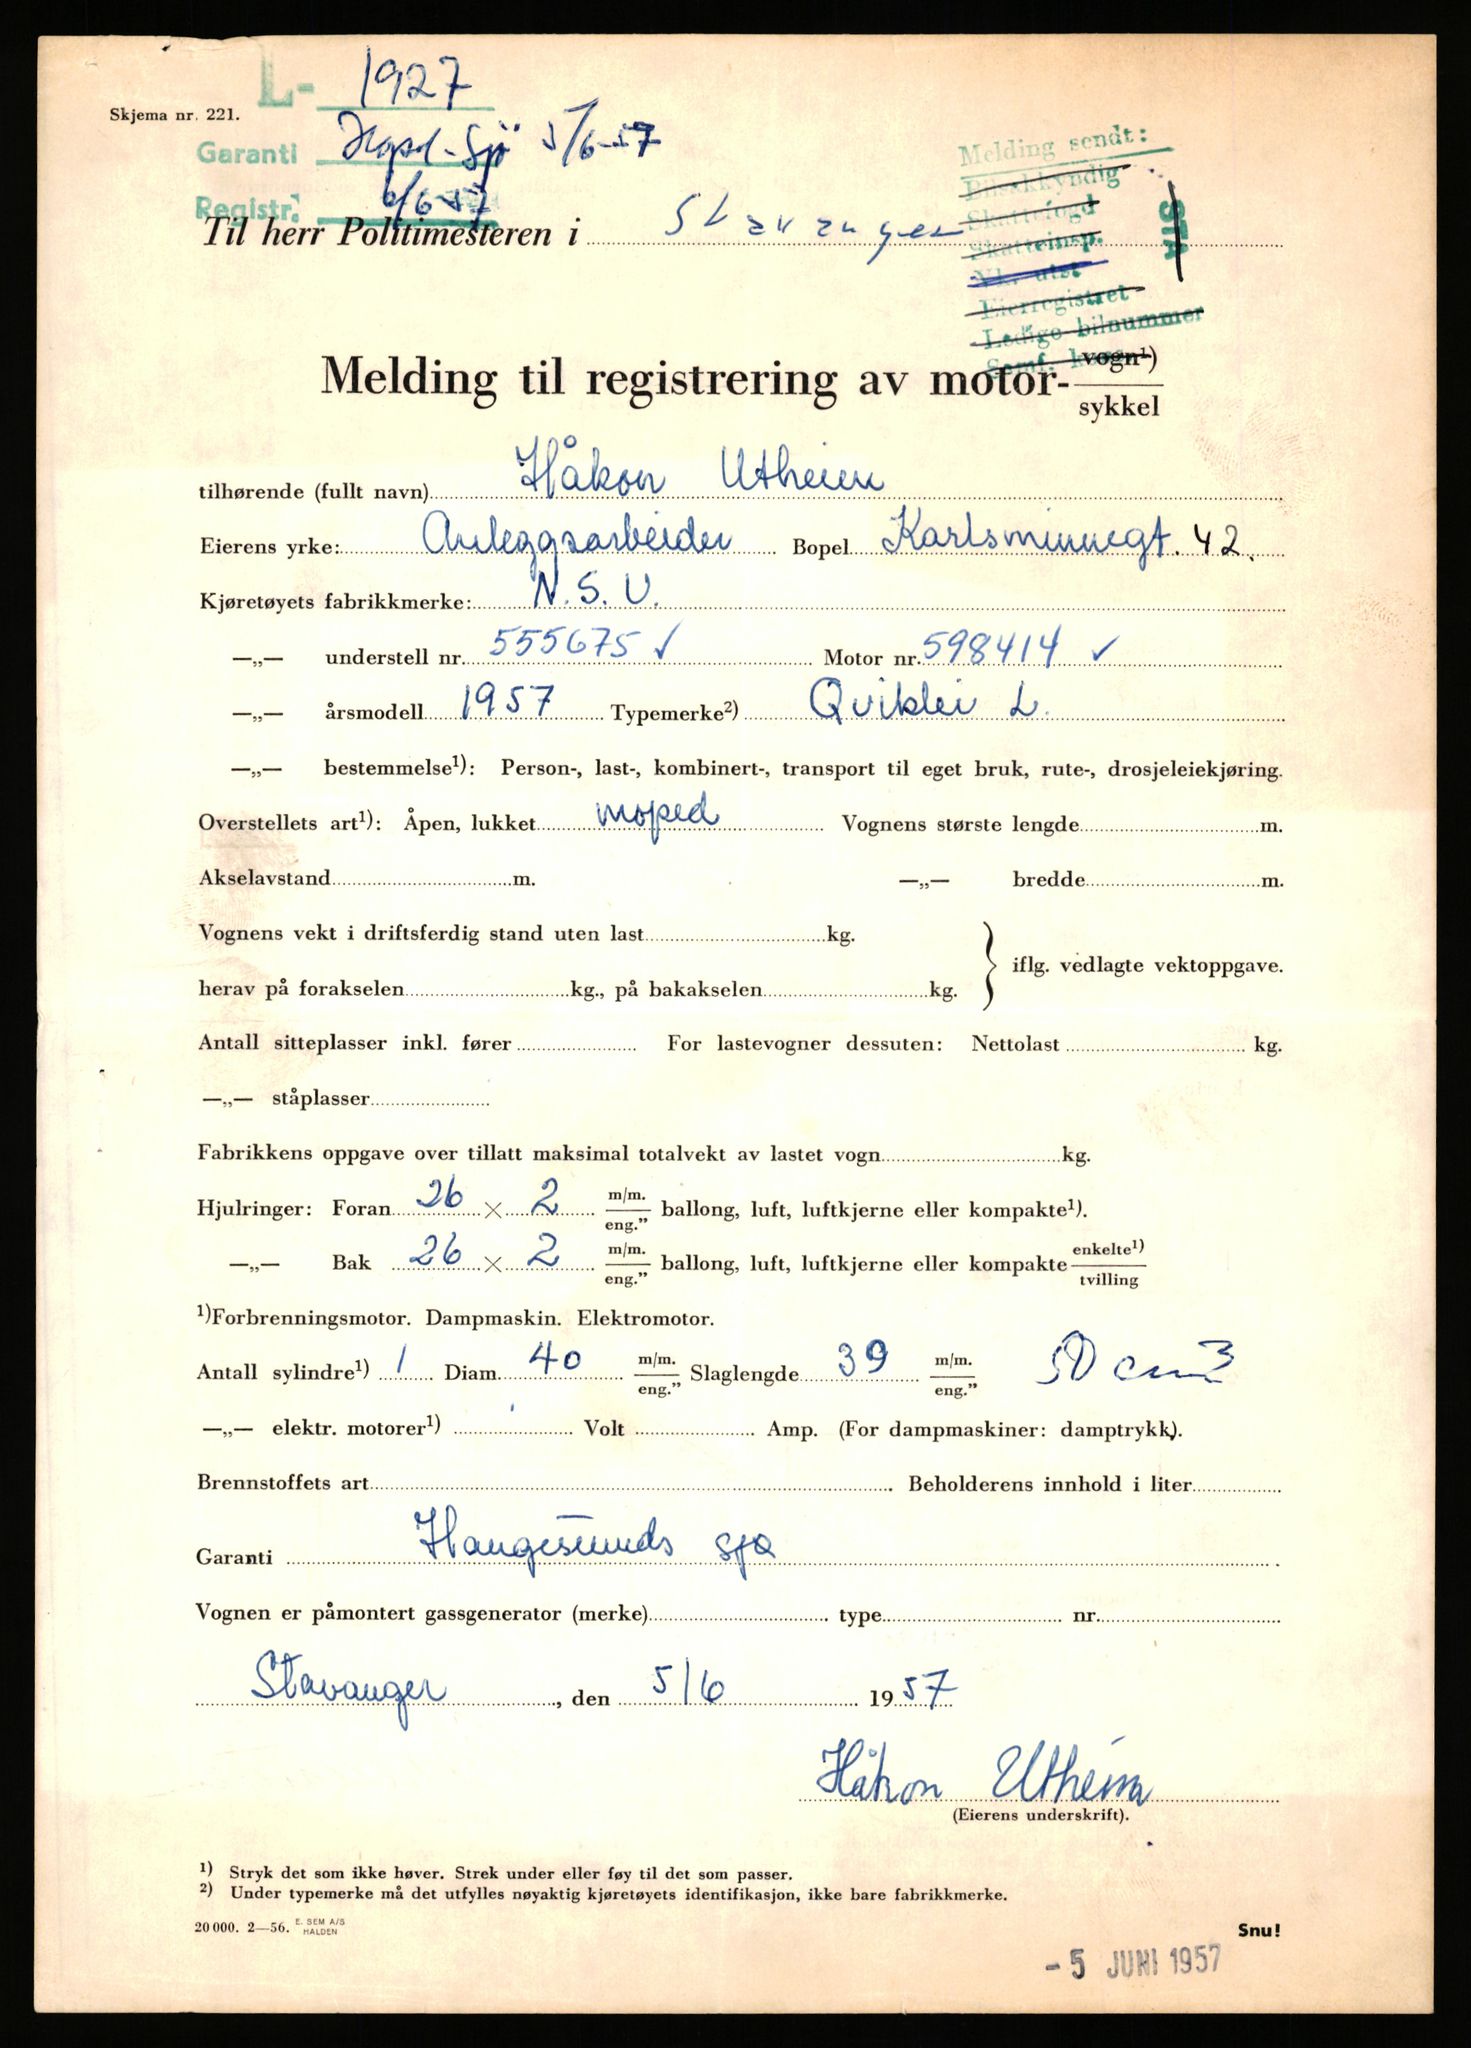 L- 1927
Skjema nr. 221.
Garanti Hgsd-Sjø 5/6-57
Registr. 6/6-57
Melding sendt:
Bilsakkyndig
Skattefogd
Skatteinsp.
Vk. utst
Eierregistret
Ledige bilnummer
STA
Til herr Politimesteren i Stavanger
Melding til registrering av motor- vogn¹) sykkel
tilhørende (fullt navn) Håkon Utheim
Eierens yrke: Anleggsarbeider Bopel Karlsminnegt. 42.
Kjøretøyets fabrikkmerke: N.S.U.
—„— understell nr. 555675 ✓ Motor nr. 598414 ✓
—„— årsmodell 1957 Typemerke²) Qviklei L.
—„— bestemmelse¹): Person-, last-, kombinert-, transport til eget bruk, rute-, drosjeleiekjøring.
Overstellets art¹): Åpen, lukket moped Vognens største lengde m.
Akselavstand m. —„— bredde m.
Vognens vekt i driftsferdig stand uten last kg.
iflg. vedlagte vektoppgave.
herav på forakselen kg., på bakakselen kg.
Antall sitteplasser inkl. fører For lastevogner dessuten: Nettolast kg.
—„— ståplasser
Fabrikkens oppgave over tillatt maksimal totalvekt av lastet vogn kg.
Hjulringer: Foran 26 × 2 m/m. eng.” ballong, luft, luftkjerne eller kompakte¹).
—„— Bak 26 × 2 m/m. eng.” ballong, luft, luftkjerne eller kompakte enkelte¹) tvilling
¹)Forbrenningsmotor. Dampmaskin. Elektromotor.
Antall sylindre¹) 1 Diam. 40 m/m. eng.” Slaglengde 39 m/m. eng.” 50 cm3
—„— elektr. motorer¹) Volt Amp. (For dampmaskiner: damptrykk).
Brennstoffets art Beholderens innhold i liter
Garanti Haugesunds sjø
Vognen er påmontert gassgenerator (merke) type nr.
Stavanger, den 5/6 1957
Håkon Utheim
(Eierens underskrift).
¹) Stryk det som ikke høver. Strek under eller føy til det som passer.
²) Under typemerke må det utfylles nøyaktig kjøretøyets identifikasjon, ikke bare fabrikkmerke.
20 000. 2—56. E. SEM A/S HALDEN
Snu!
- 5 JUNI 1957